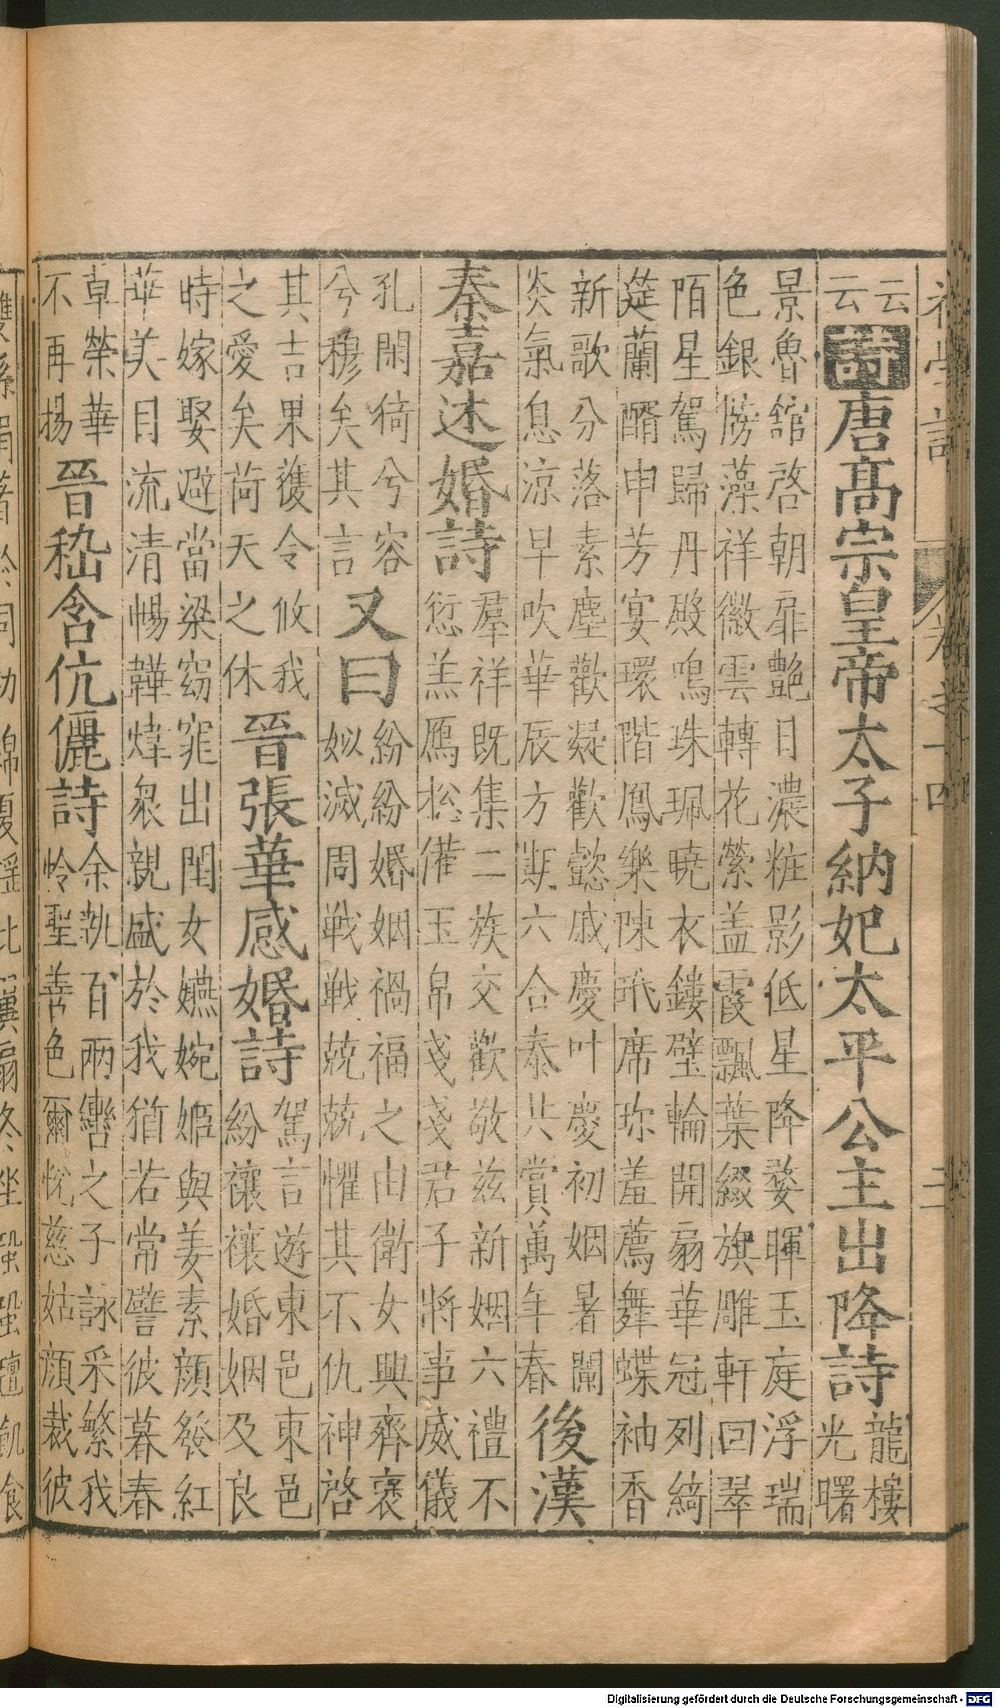 云云詩唐髙宗皇帝太子納妃太平公主出降詩龍樓光曙
景魯館啓朝扉艶日濃粧影低星降婺暉玉庭浮瑞
色銀牓藻祥徽雲轉花縈盖霞飄葉綴旗雕軒回翠
陌星駕歸丹殿鳴珠珮曉衣鏤璧輪開扇華冠列綺
筵蘭醑申芳宴環階鳳樂陳玳席珎羞薦舞蝶袖香
新歌分落素塵歡凝歡懿戚慶叶慶初姻暑闌
炎氣息涼早吹華辰方期六合泰共賞萬年春後漢
秦嘉述婚詩羣祥既集二族交歡敬兹新姻六禮不
愆羔鴈㧾備玉帛戔戔君子將事威儀
孔閑猗兮容兮穆矣其言又曰紛紛婚姻禍福之由衛女興齊褒
姒滅周戰戰兢兢懼其不仇神啓
其吉果獲令攸我之愛矣荷天之休晉張華感婚詩駕言遊東邑東邑
紛禳禳婚姻及良
時嫁娶避當梁窈窕出閨女嬿婉姬與姜素顔發紅
華美目流清暢韡煒衆親盛於我猶若常譬彼暮春
卓榮華不再揚晉嵇含伉儷詩余執百兩轡之子詠采繁我
怜聖善色爾悅慈姑顔裁彼
初學記 卷之十四 三
Digitalisierung gefördert durch die Deutsche Forschungsgemeinschaft - DFG